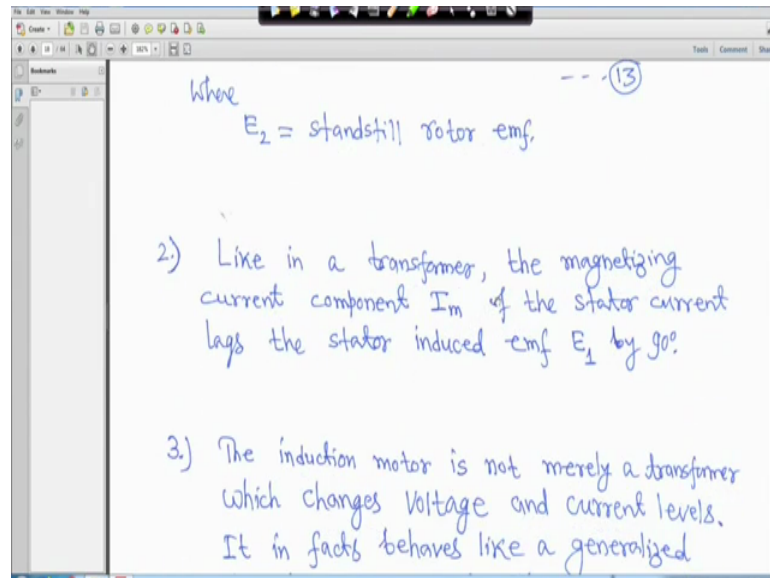 File Edit View Window Help
Create
18 / 44
162%
Tools Comment
Bookmarks
--- (13)
Where
E₂ = standstill rotor emf.
2.) Like in a transformer, the magnetizing
current component Iₘ of the stator current
lags the stator induced emf E₁ by 90°.
3.) The induction motor is not merely a transformer
which changes voltage and current levels.
It in facts behaves like a generalized